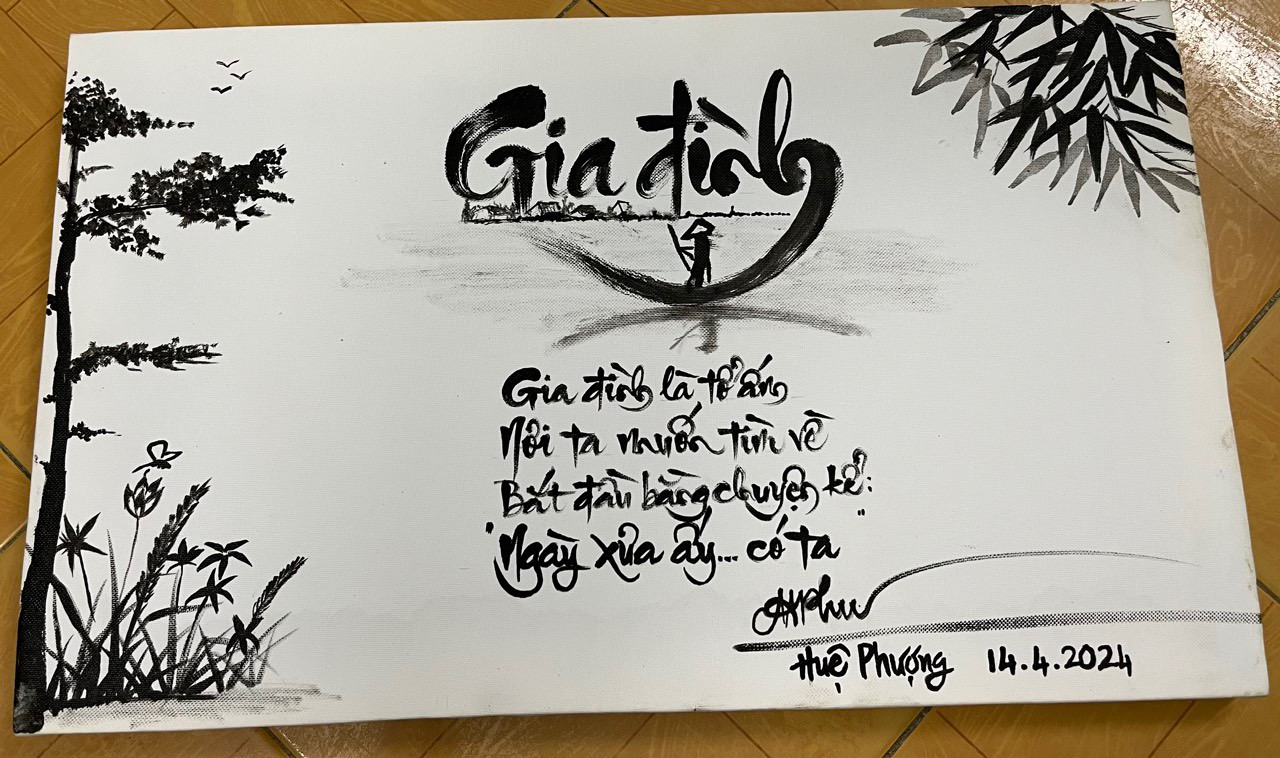 Gia đình
Gia đình là tổ ấm
Nơi ta muốn tìm về
Bắt đầu bằng chuyện kể:
"Ngày xửa ấy... có ta"
Huệ Phượng 14.4.2024